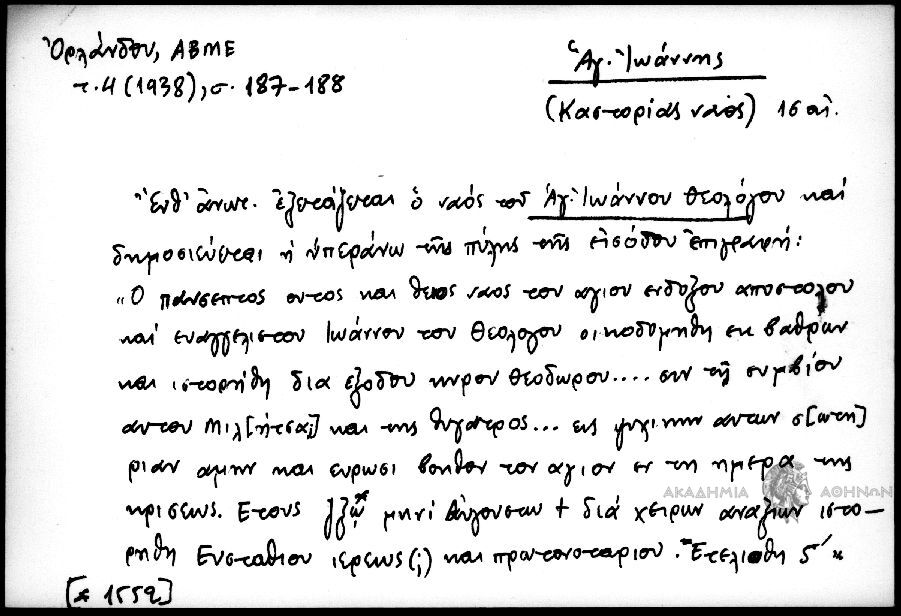 Ὀρλάνδου, ΑΒΜΕ
τ. Δ (1938), σ. 187-188
Ἁγ. Ἰωάννης
(Καστορίας ναός) 16 αἰ.
Ἔνθ' ἄνωτ. ἐξετάζεται ὁ ναός τοῦ Ἁγ. Ἰωάννου Θεολόγου καί
δημοσιεύεται ἡ ὑπεράνω τῆς πύλης τῆς εἰσόδου ἐπιγραφή:
"Ο πανσεπτος ουτος και θειος ναος του αγιου ενδοξου αποστολου
καί ευαγγελιστου Ιωάννου του Θεολογου οικοδομηθη εκ βαθρων
και ιστορήθη δια εξοδου κυρου Θεοδωρου.... συν τῇ συμβίου
αυτου Μιλ[ήτσα;] και της θυγατρος... εις ψυχικην αυτων σ[ωτη]
ριαν αμην και ευρωσι βοηθον τον αγιον εν τη ημερα της
κρισεως. Ετους μηνί Αὐγουστω + διά χειρων αναξιων ιστο-
ρηθη Ευσταθιου ιερεως(;) και πρωτονοταριου. Ετελιοθη ς´"
[= 1552]
ΑΚΑΔΗΜΙΑ ΑΘΗΝΩΝ